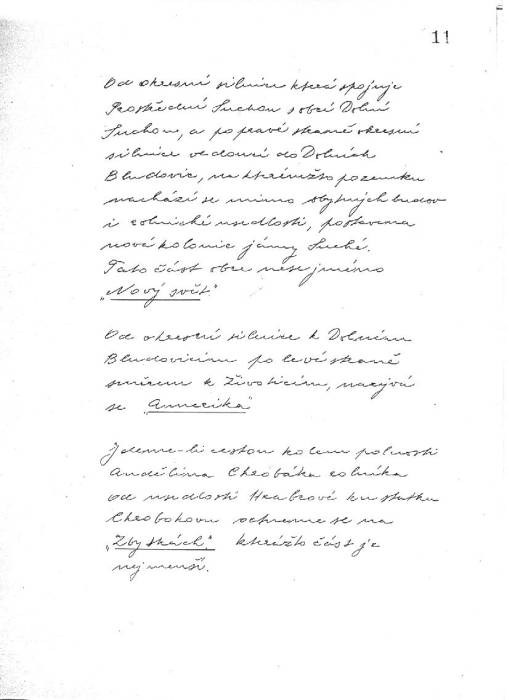 11
Od okresní silnice která spojuje
Prostřední Suchou s obcí Dolní
Suchou, a po pravé straně okresní
silnice vedoucí do Dolních
Bludovic, na kterémžto pozemku
nachází se mimo obytných budov
i rolnické usedlosti, postavena
nová kolonie jámy Suché.
Tato část obce nese jméno
„Nový svět."
Od okresní silnice k Dolním
Bludovicím po levé straně
směrem k Životicím, nazývá
se „Amerika"
Jdeme-li cestou kolem polností
Anděl­ína Chrobáka rolníka
od usedlosti Hrabcové ku statku
Chrobokovu ochneme se na
„Zbytkách", kterážto část je
nejmenší.